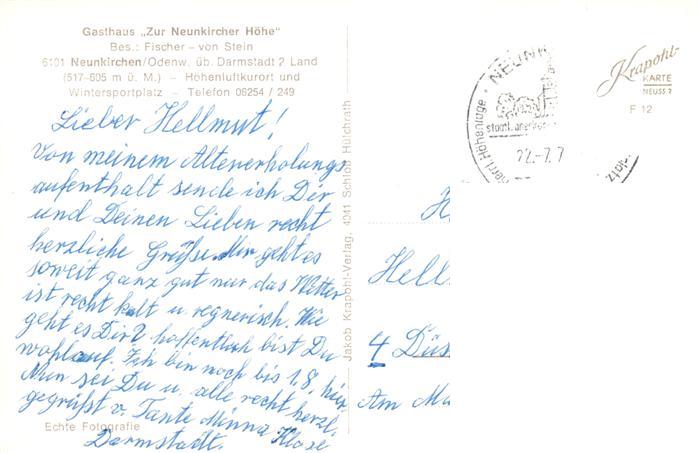 Gasthaus „Zur Neunkircher Höhe"
Bes.: Fischer – von Stein
6101 Neunkirchen/Odenw. üb. Darmstadt 2 Land
(517–605 m ü. M.) – Höhenluftkurort und
Wintersportplatz – Telefon 06254 / 249
Lieber Hellmut!
Von meinem Altenerholungs
aufenthalt sende ich Dir
und Deinen Lieben recht
herzliche Grüße. Mir geht es
soweit ganz gut nur das Wetter
ist recht kalt u. regnerisch. Wie
geht es Dir? hoffentlich bist Du
wohlauf. Ich bin noch bis 1.8. hier.
Nun sei Du u. alle recht herzl.
gegrüßt v. Tante Minna Klose
Echte Fotografie
Darmstadt.
Jakob Krapohl-Verlag, 4041 Schloß Hülchrath
NEUNK
staatl. anerk
herrl. Höhenlage
22.-7.7
Krapohl-
KARTE
NEUSS 2
F 12
H
Hell
4 Düs
Am Mu